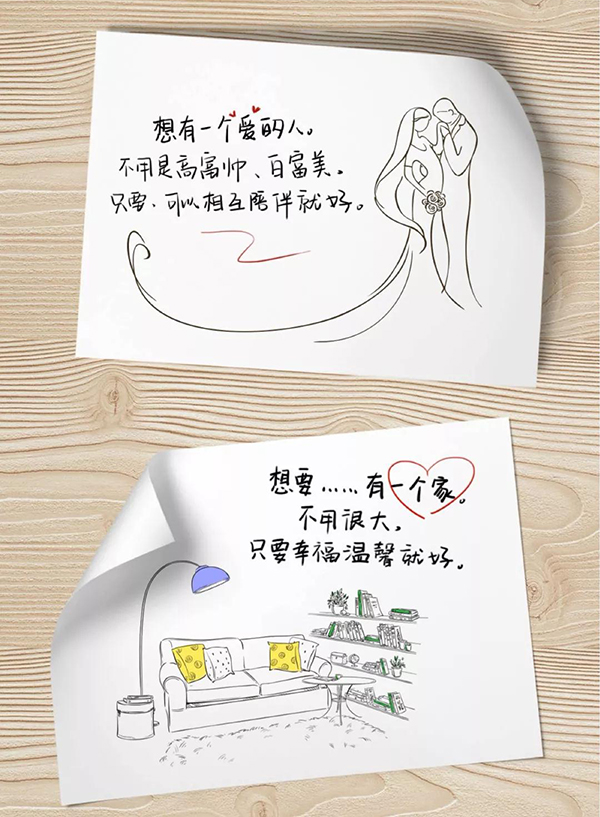 想有一个爱的人。
不用是高富帅、白富美。
只要、可以相互陪伴就好。
想要……有一个家。
不用很大,
只要幸福温馨就好。